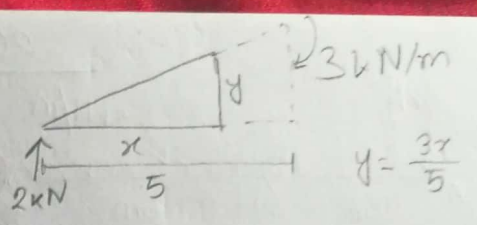 3kN/m
y
x
2kN
5
y = 3x/5